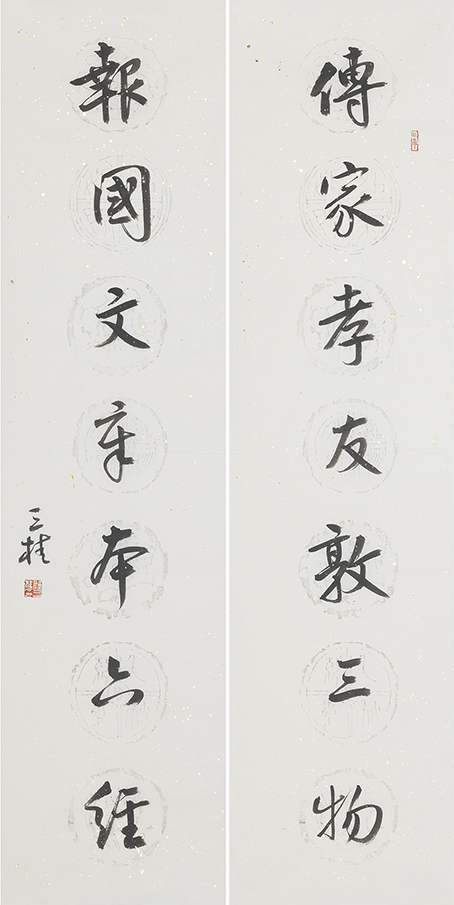 傳家孝友敦三物
報國文章本六經
三桂